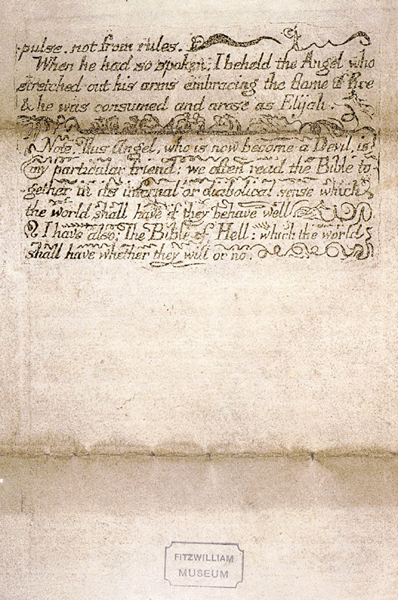 pulse. not from rules.
When he had so spoken; I beheld the Angel who
stretched out his arms embracing the flame of fire
& he was consumed and arose as Elijah.
Note. This Angel, who is now become a Devil, is
my particular friend: we often read the Bible to-
gether in its infernal or diabolical sense which
the world shall have if they behave well
I have also; The Bible of Hell: which the world
shall have whether they will or no.
FITZWILLIAM
MUSEUM